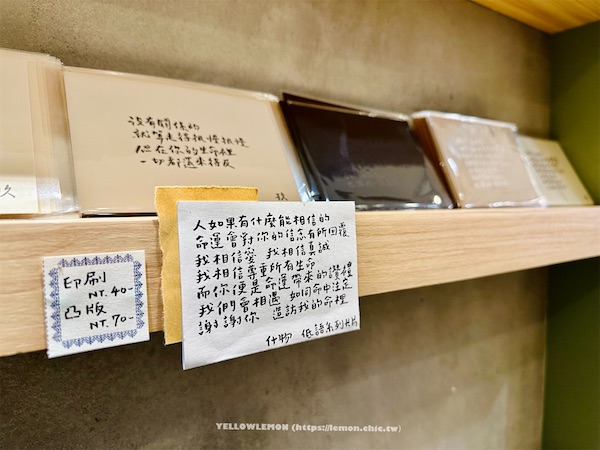 沒有關係的
就算走得抵慢抵慢
但在你的生命裡
一切都還來得及
玖
玖
印刷
NT.40-
凸版
NT.70-
人如果有什麼能相信的
命運會對你的信念有所回覆
我相信愛 我相信真誠
我相信尊重所有生命
而你便是命運帶來的讚禮
我們會相遇 如同命中注定
謝謝你 造訪我的命裡
什物 低語系列卡片
YELLOWLEMON (https://lemon.chic.tw)